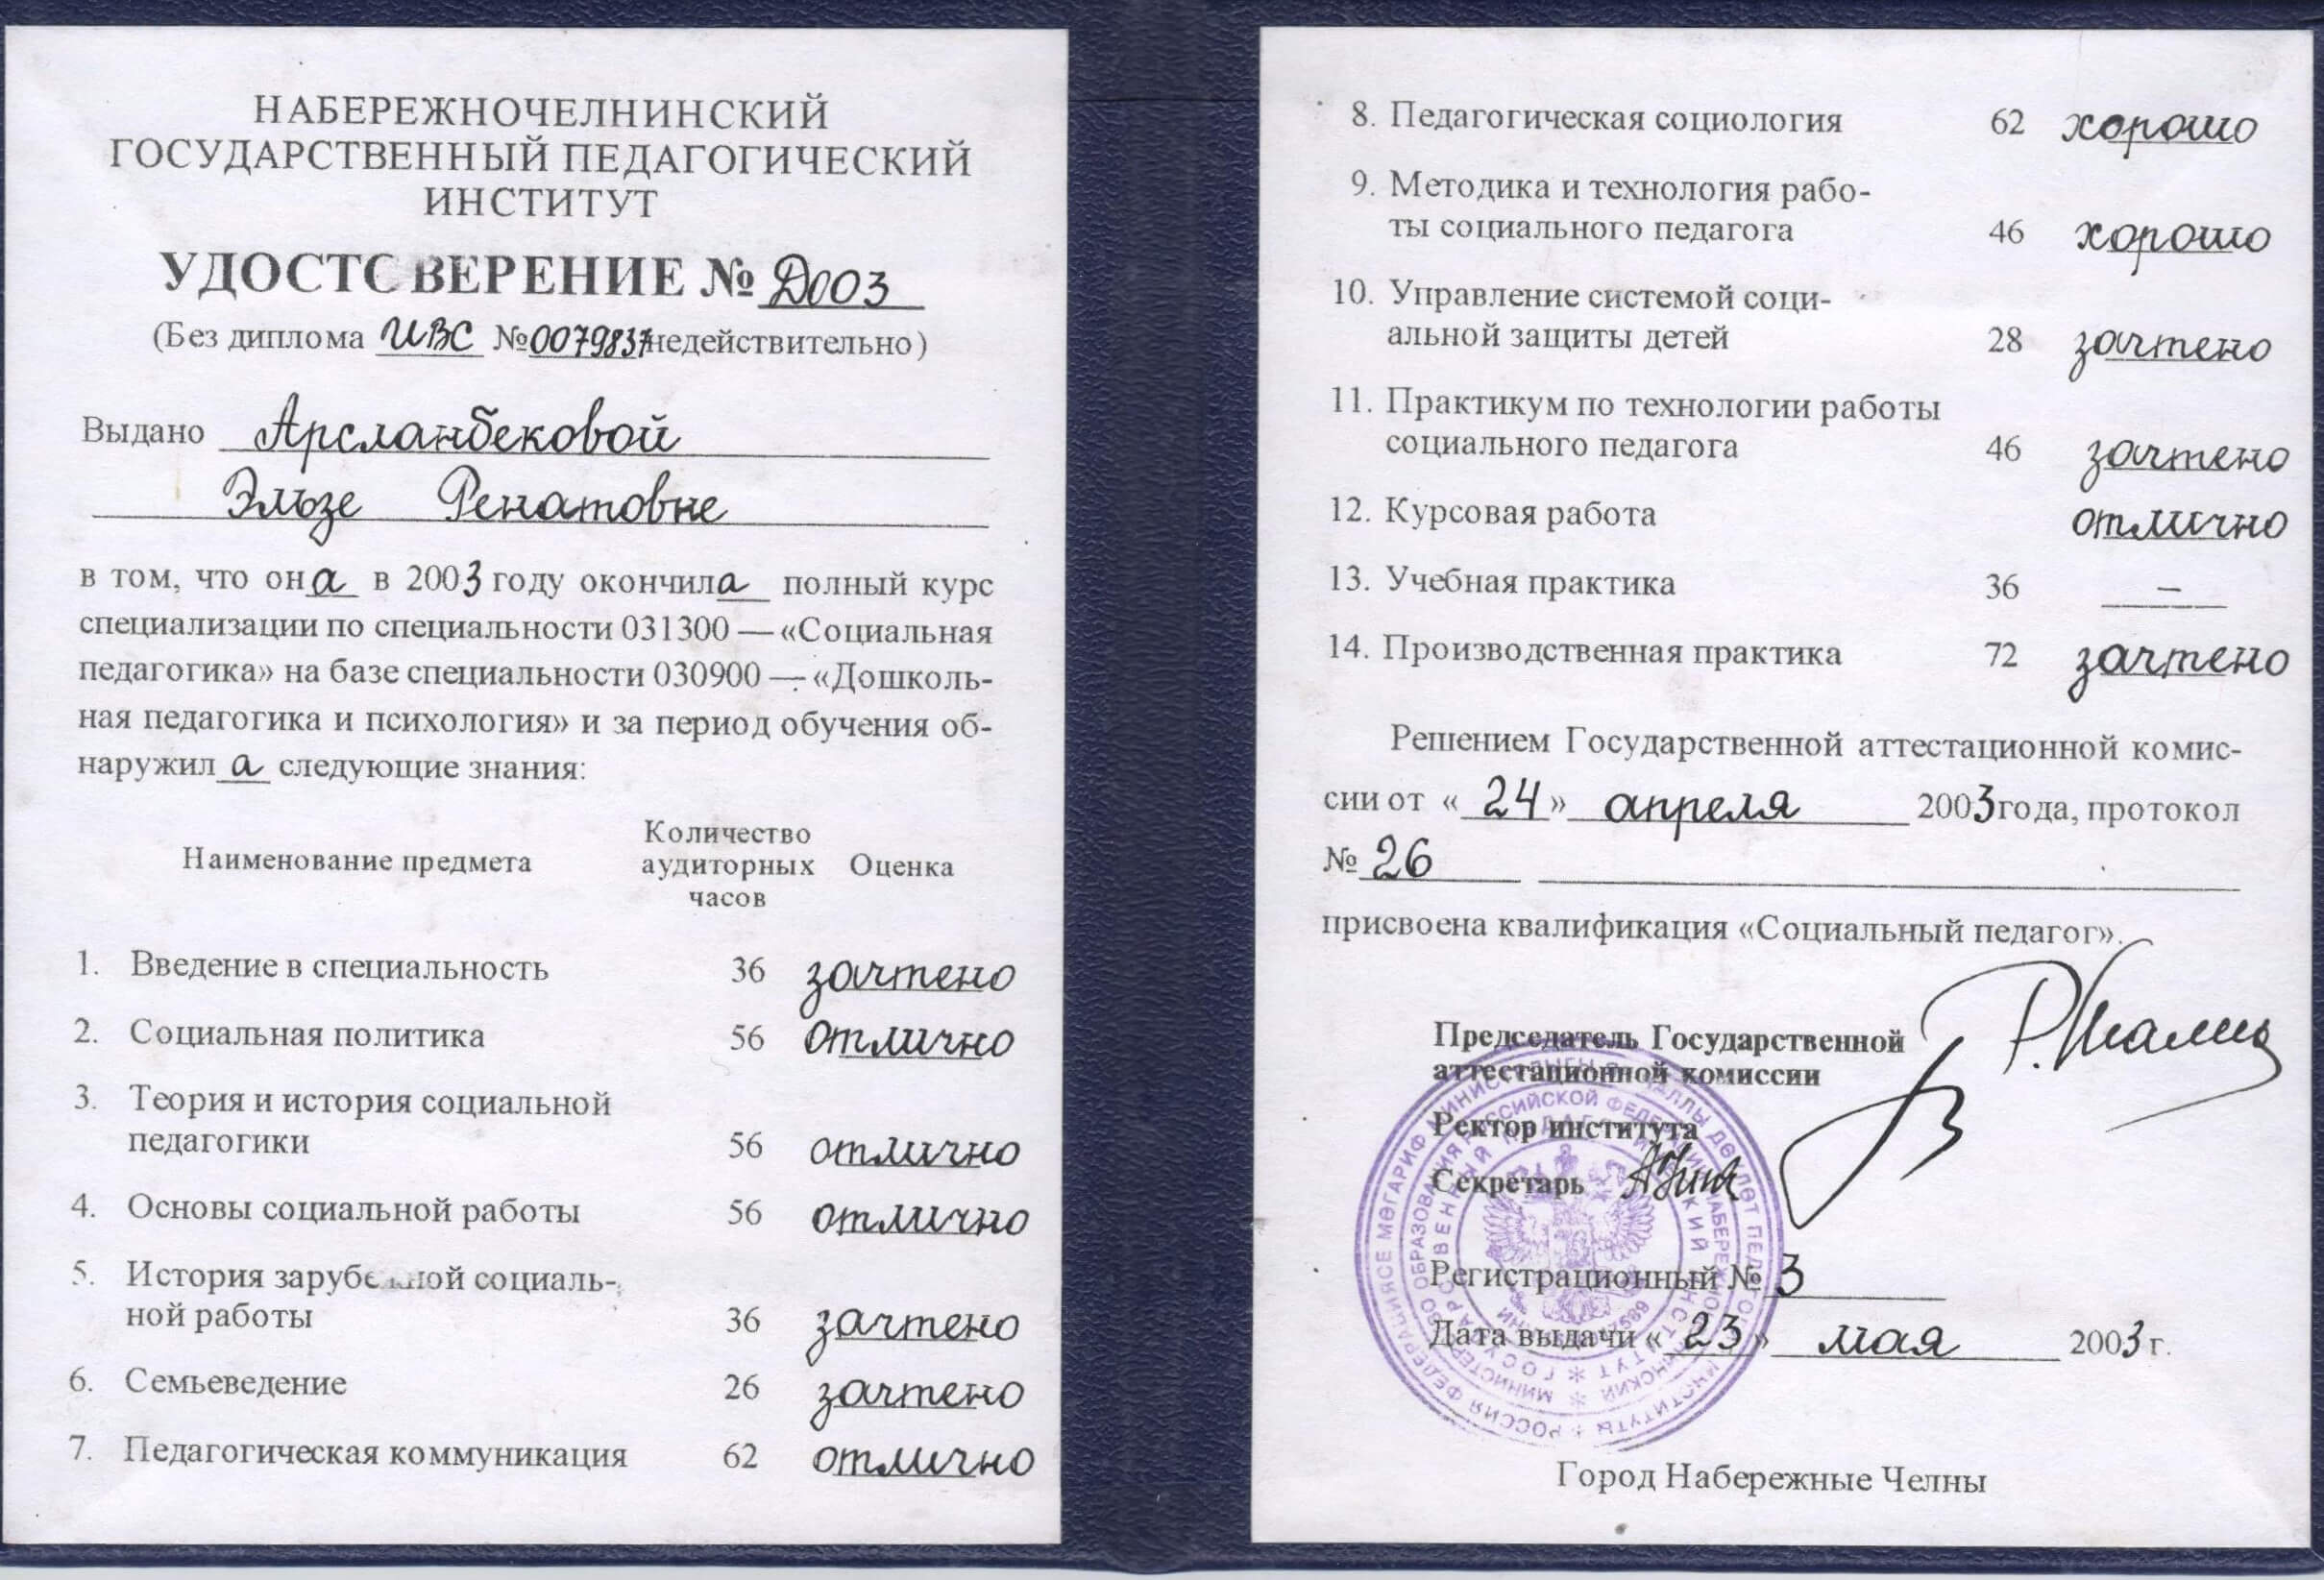 НАБЕРЕЖНОЧЕЛНИНСКИЙ
ГОСУДАРСТВЕННЫЙ ПЕДАГОГИЧЕСКИЙ
ИНСТИТУТ
УДОСТОВЕРЕНИЕ № Д003
(Без диплома ИВС №0079837 недействительно)
Выдано Арсланбековой
Эльзе Ренатовне
в том, что она в 2003 году окончила полный курс
специализации по специальности 031300 — «Социальная
педагогика» на базе специальности 030900 — «Дошколь-
ная педагогика и психология» и за период обучения об-
наружил а следующие знания:
Наименование предмета Количество аудиторных часов Оценка
1. Введение в специальность 36 зачтено
2. Социальная политика 56 отлично
3. Теория и история социальной
педагогики 56 отлично
4. Основы социальной работы 56 отлично
5. История зарубежной социаль-
ной работы 36 зачтено
6. Семьеведение 26 зачтено
7. Педагогическая коммуникация 62 отлично
8. Педагогическая социология 62 хорошо
9. Методика и технология рабо-
ты социального педагога 46 хорошо
10. Управление системой соци-
альной защиты детей 28 зачтено
11. Практикум по технологии работы
социального педагога 46 зачтено
12. Курсовая работа отлично
13. Учебная практика 36 –
14. Производственная практика 72 зачтено
Решением Государственной аттестационной комис-
сии от «24» апреля 2003 года, протокол
№ 26
присвоена квалификация «Социальный педагог».
Председатель Государственной
аттестационной комиссии
Ректор института
Секретарь
Регистрационный № 3
Дата выдачи «23» мая 2003 г.
Город Набережные Челны